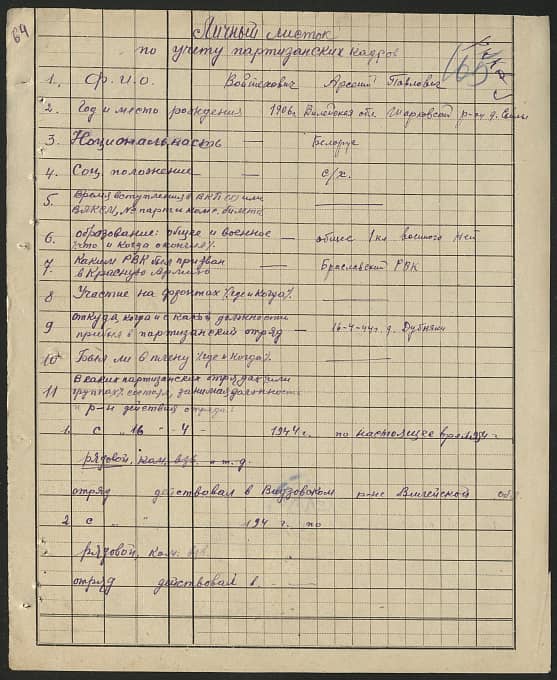 64
Личный листок
по учету партизанских кадров
1. Ф.И.О. Войтехович Арсений Павлович
2. Год и место рождения 1906, Вилейская обл. Шарковский р-он д.
3. Национальность — Белорус
4. Соц. положение — с/х.
5. Время вступления в ВКП(б) или
ВЛКСМ, № парт. и комс. билета —
6. образование: общее и военное
/что и когда окончил/. — общее 1 кл. военного нет
7. Каким РВК был призван
в Красную Армию — Браславский РВК
8 Участие на фронтах /где и когда/. —
9 откуда, когда и с какой должности
прибыл в партизанский отряд — 16-4-44г. д. Дубняки
10 Был ли в плену /где и когда/. —
11 В каких партизанских отрядах или
группах состоял, занимая должность
и р-н действий отряда:
1. с „16 „ 4 - 1944 г. по настоящее время
рядовой, ком. взв. и т.д.
отряд действовал в Видзовском р-не Вилейской обл.
2 с „ „ 194 г. по
рядовой, ком. взв.
отряд действовал в - —